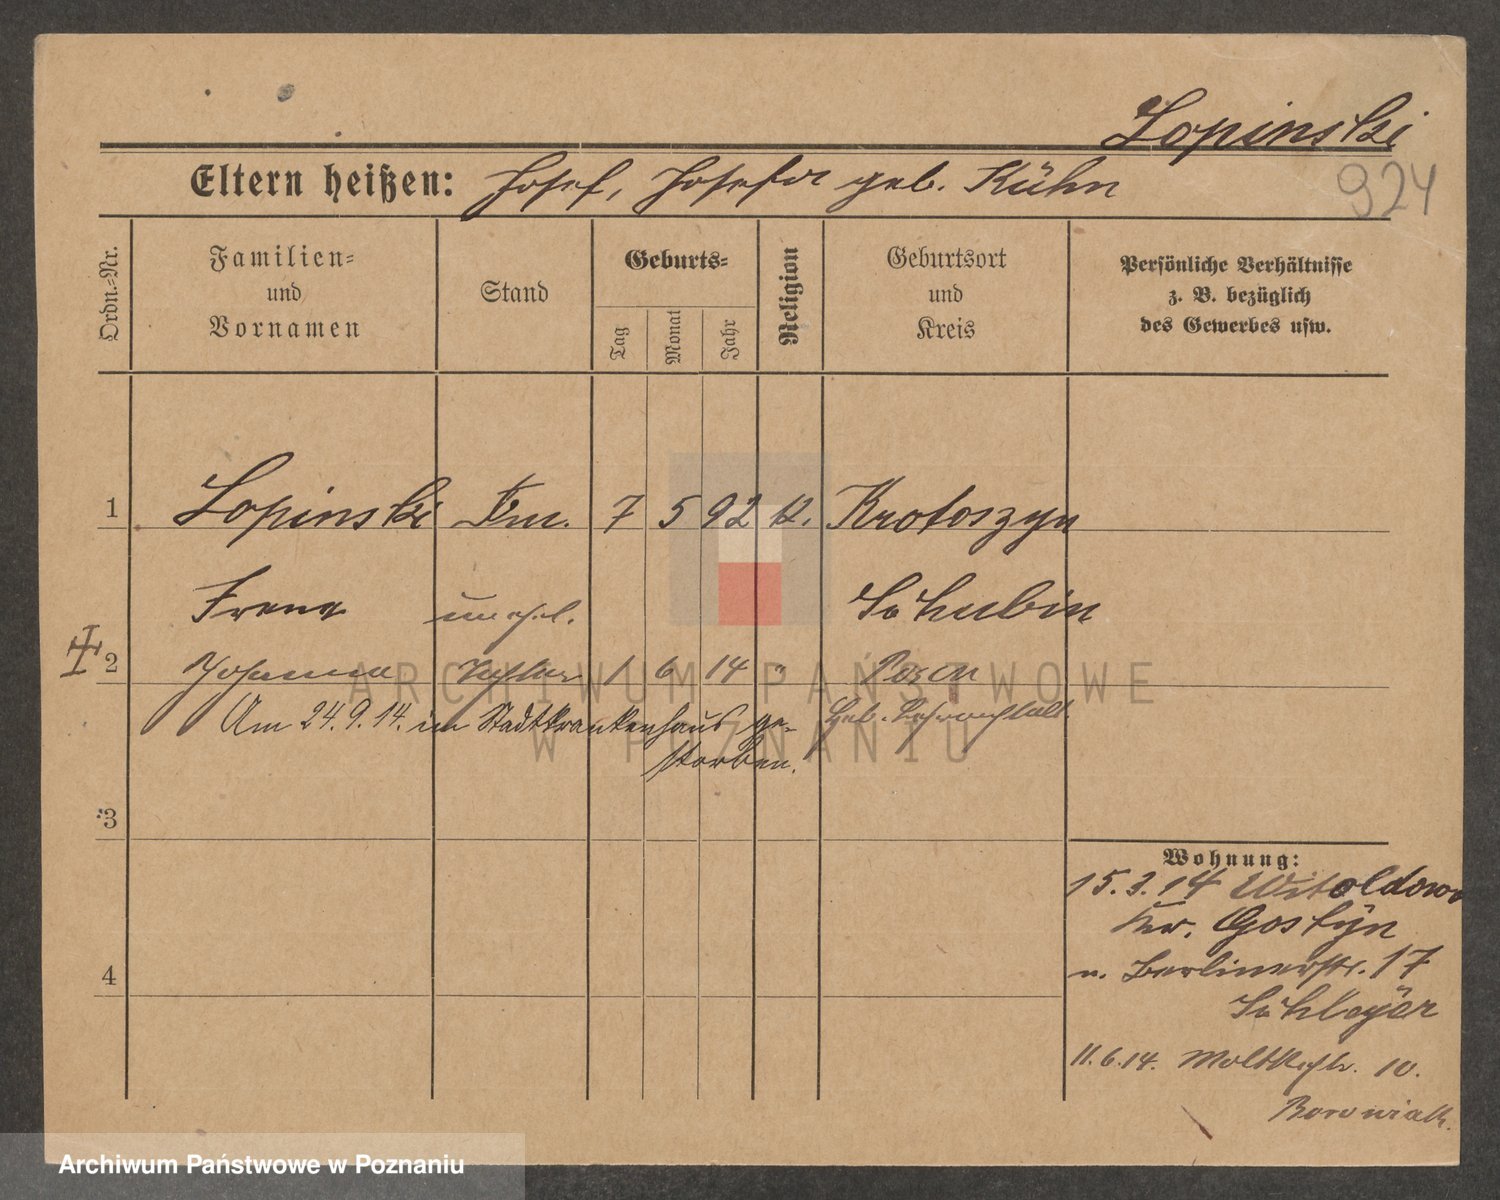 Lopinski
Eltern heißen: Josef, Josefa geb. Kühn
924
Ordn.-Nr.
Familien- und Vornamen
Stand
Geburts-
Tag
Monat
Jahr
Religion
Geburtsort und Kreis
Persönliche Verhältnisse z. B. bezüglich des Gewerbes usw.
1 Lopinski 7 5 92 k. Krotoszyn
Irena unehel. Schubin
2 Johanna Tochter 1 6 14 " Posen
Am 24.9.14. im Stadtkrankenhaus ge-
storben.
Heb. Lehranstalt.
3
4
Wohnung:
15.3.14 Witoldowo
Kr. Gostyn
n. Berlinerstr. 17
Schleyer
11.6.14. Moltkestr. 10.
Borowiak.
ARCHIWUM PAŃSTWOWE
W POZNANIU
Archiwum Państwowe w Poznaniu